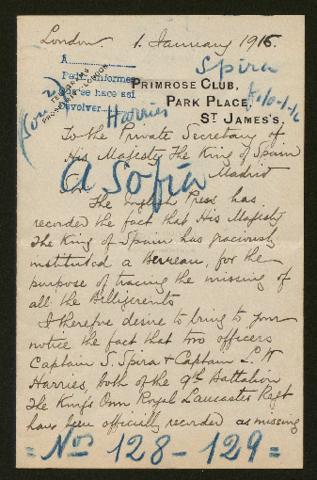 London. 1. January 1916.
A
Para informe
Devolver
Spira
Harries
PRIMROSE CLUB,
PARK PLACE,
ST JAMES'S,
To the Private Secretary of
His Majesty The King of Spain
Madrid
a Sofia
Sir
The English Press has
recorded the fact that His Majesty
The King of Spain has graciously
instituted a Bureau, for the
purpose of tracing the missing of
all the Belligerents
I therefore desire to bring to your
notice the fact that two officers
Captain S. Spira & Captain L. W
Harries, both of the 9th Battalion
The Kings Own Royal Lancaster Regt
have been officially recorded as missing
= Nos 128 - 129 =